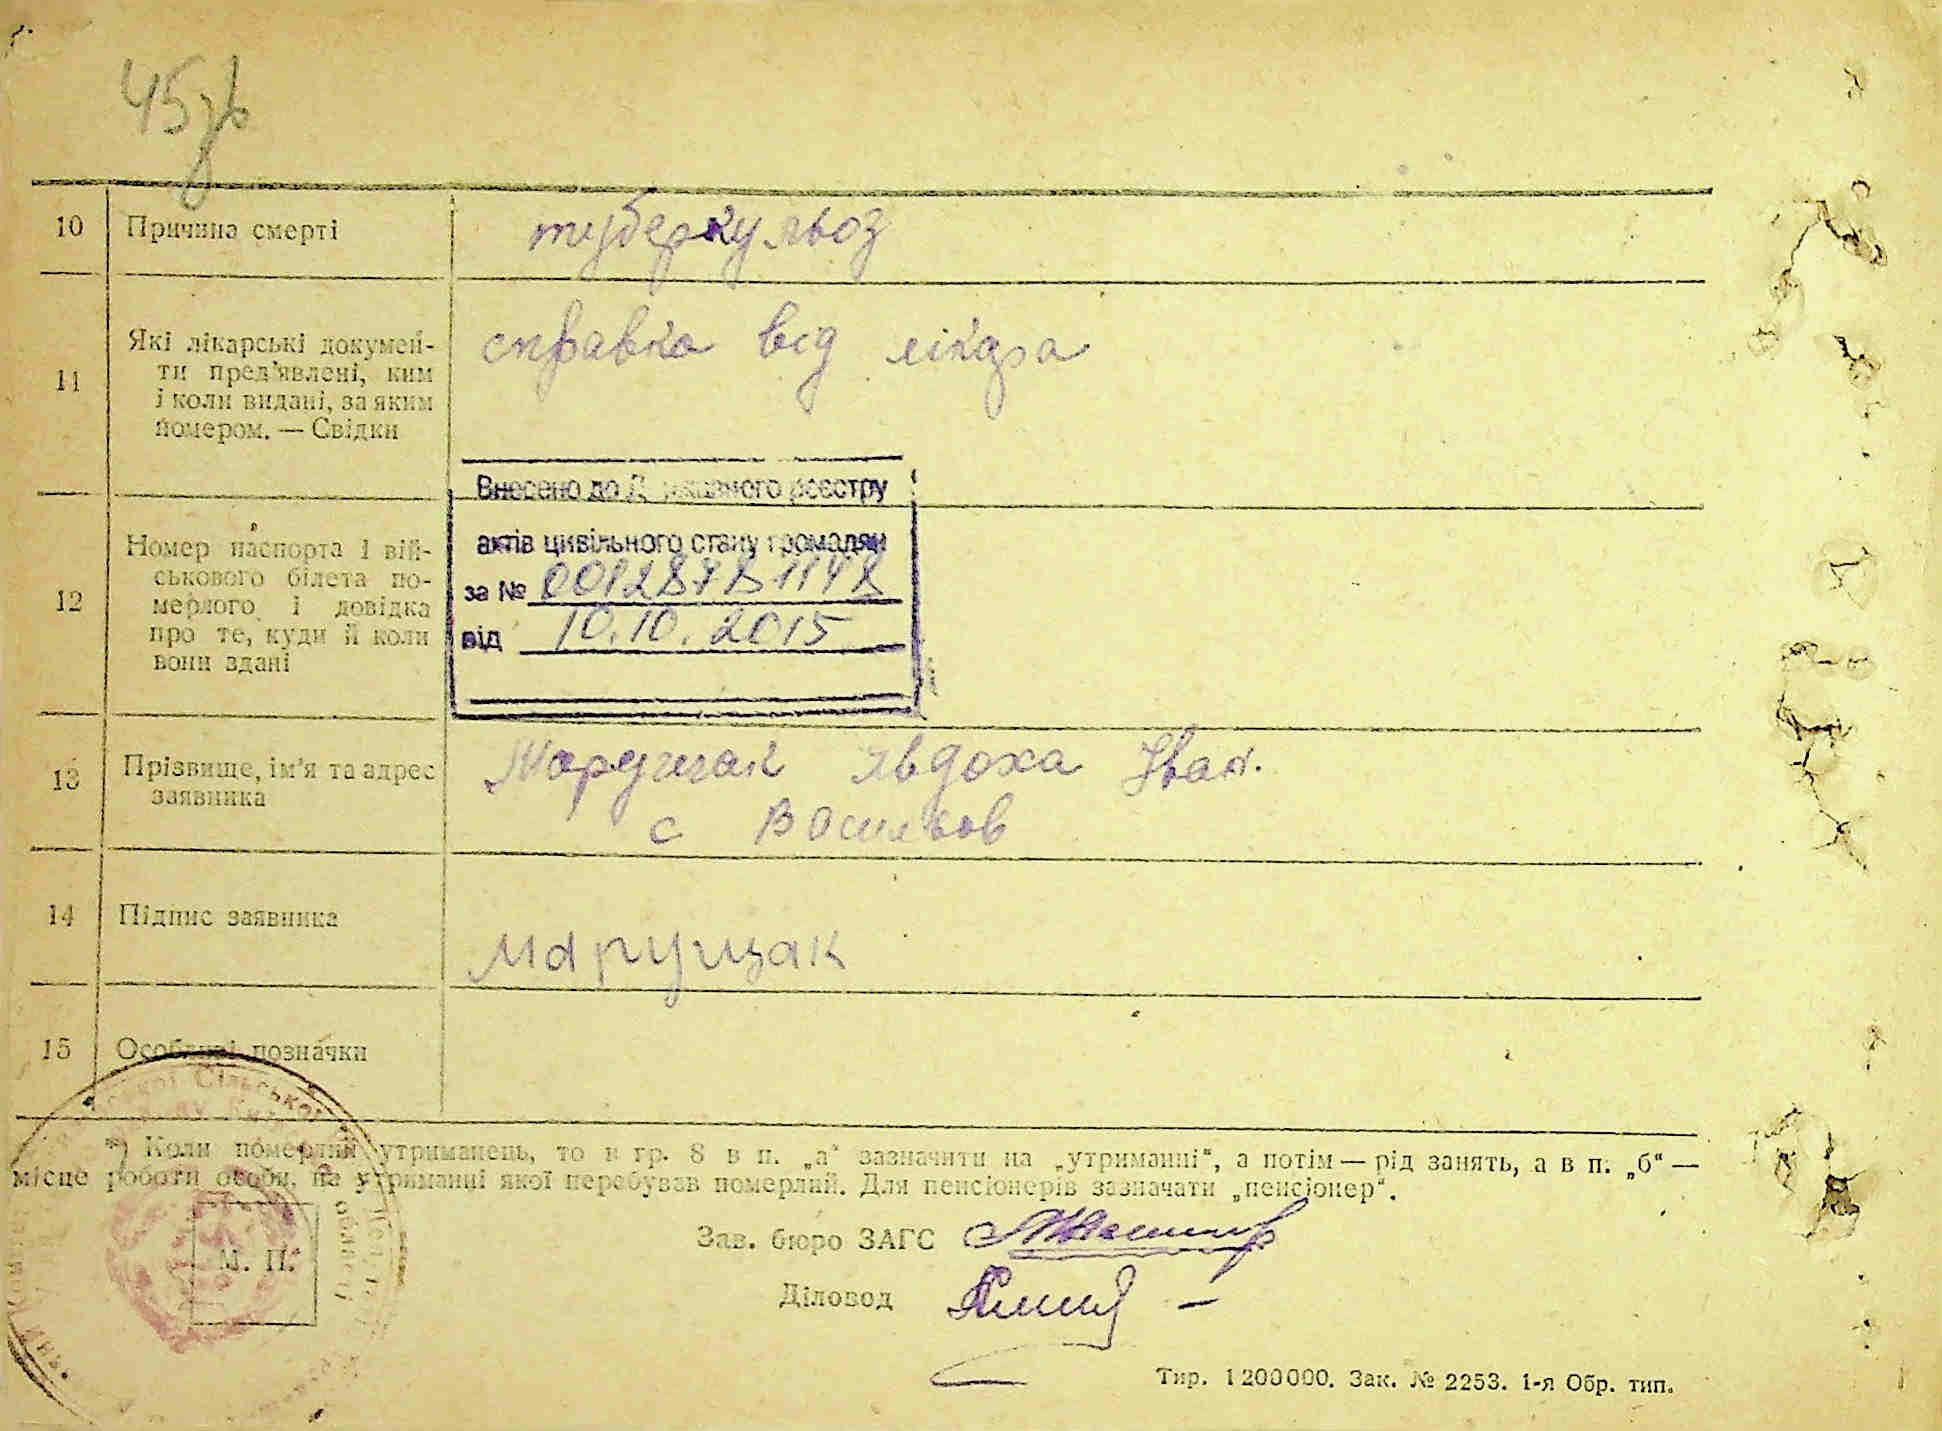 45 зв
10 Причина смерті туберкульоз
11 Які лікарські докумен-
ти пред'явлені, ким
і коли видані, за яким
номером. — Свідки
справка від лікара
Внесено до Державного реєстру
актів цивільного стану громадян
за № 00128781148
від 10.10.2015
12 Номер паспорта і вій-
ськового білета по-
мерлого і довідка
про те, куди й коли
вони здані
13 Прізвище, ім'я та адрес
заявника
Марущак Явдоха Іван.
с Васильов
14 Підпис заявника
Марущак
15 Особливі позначки
*) Коли померлий утриманець, то в гр. 8 в п. „а“ зазначити на „утриманні“, а потім — рід занять, а в п. „б“ —
місце роботи особи, на утриманні якої перебував померлий. Для пенсіонерів зазначати „пенсіонер“.
Сільської
області
М. П.
Зав. бюро ЗАГС
Діловод
Тир. 1200000. Зак. № 2253. 1-я Обр. тип.